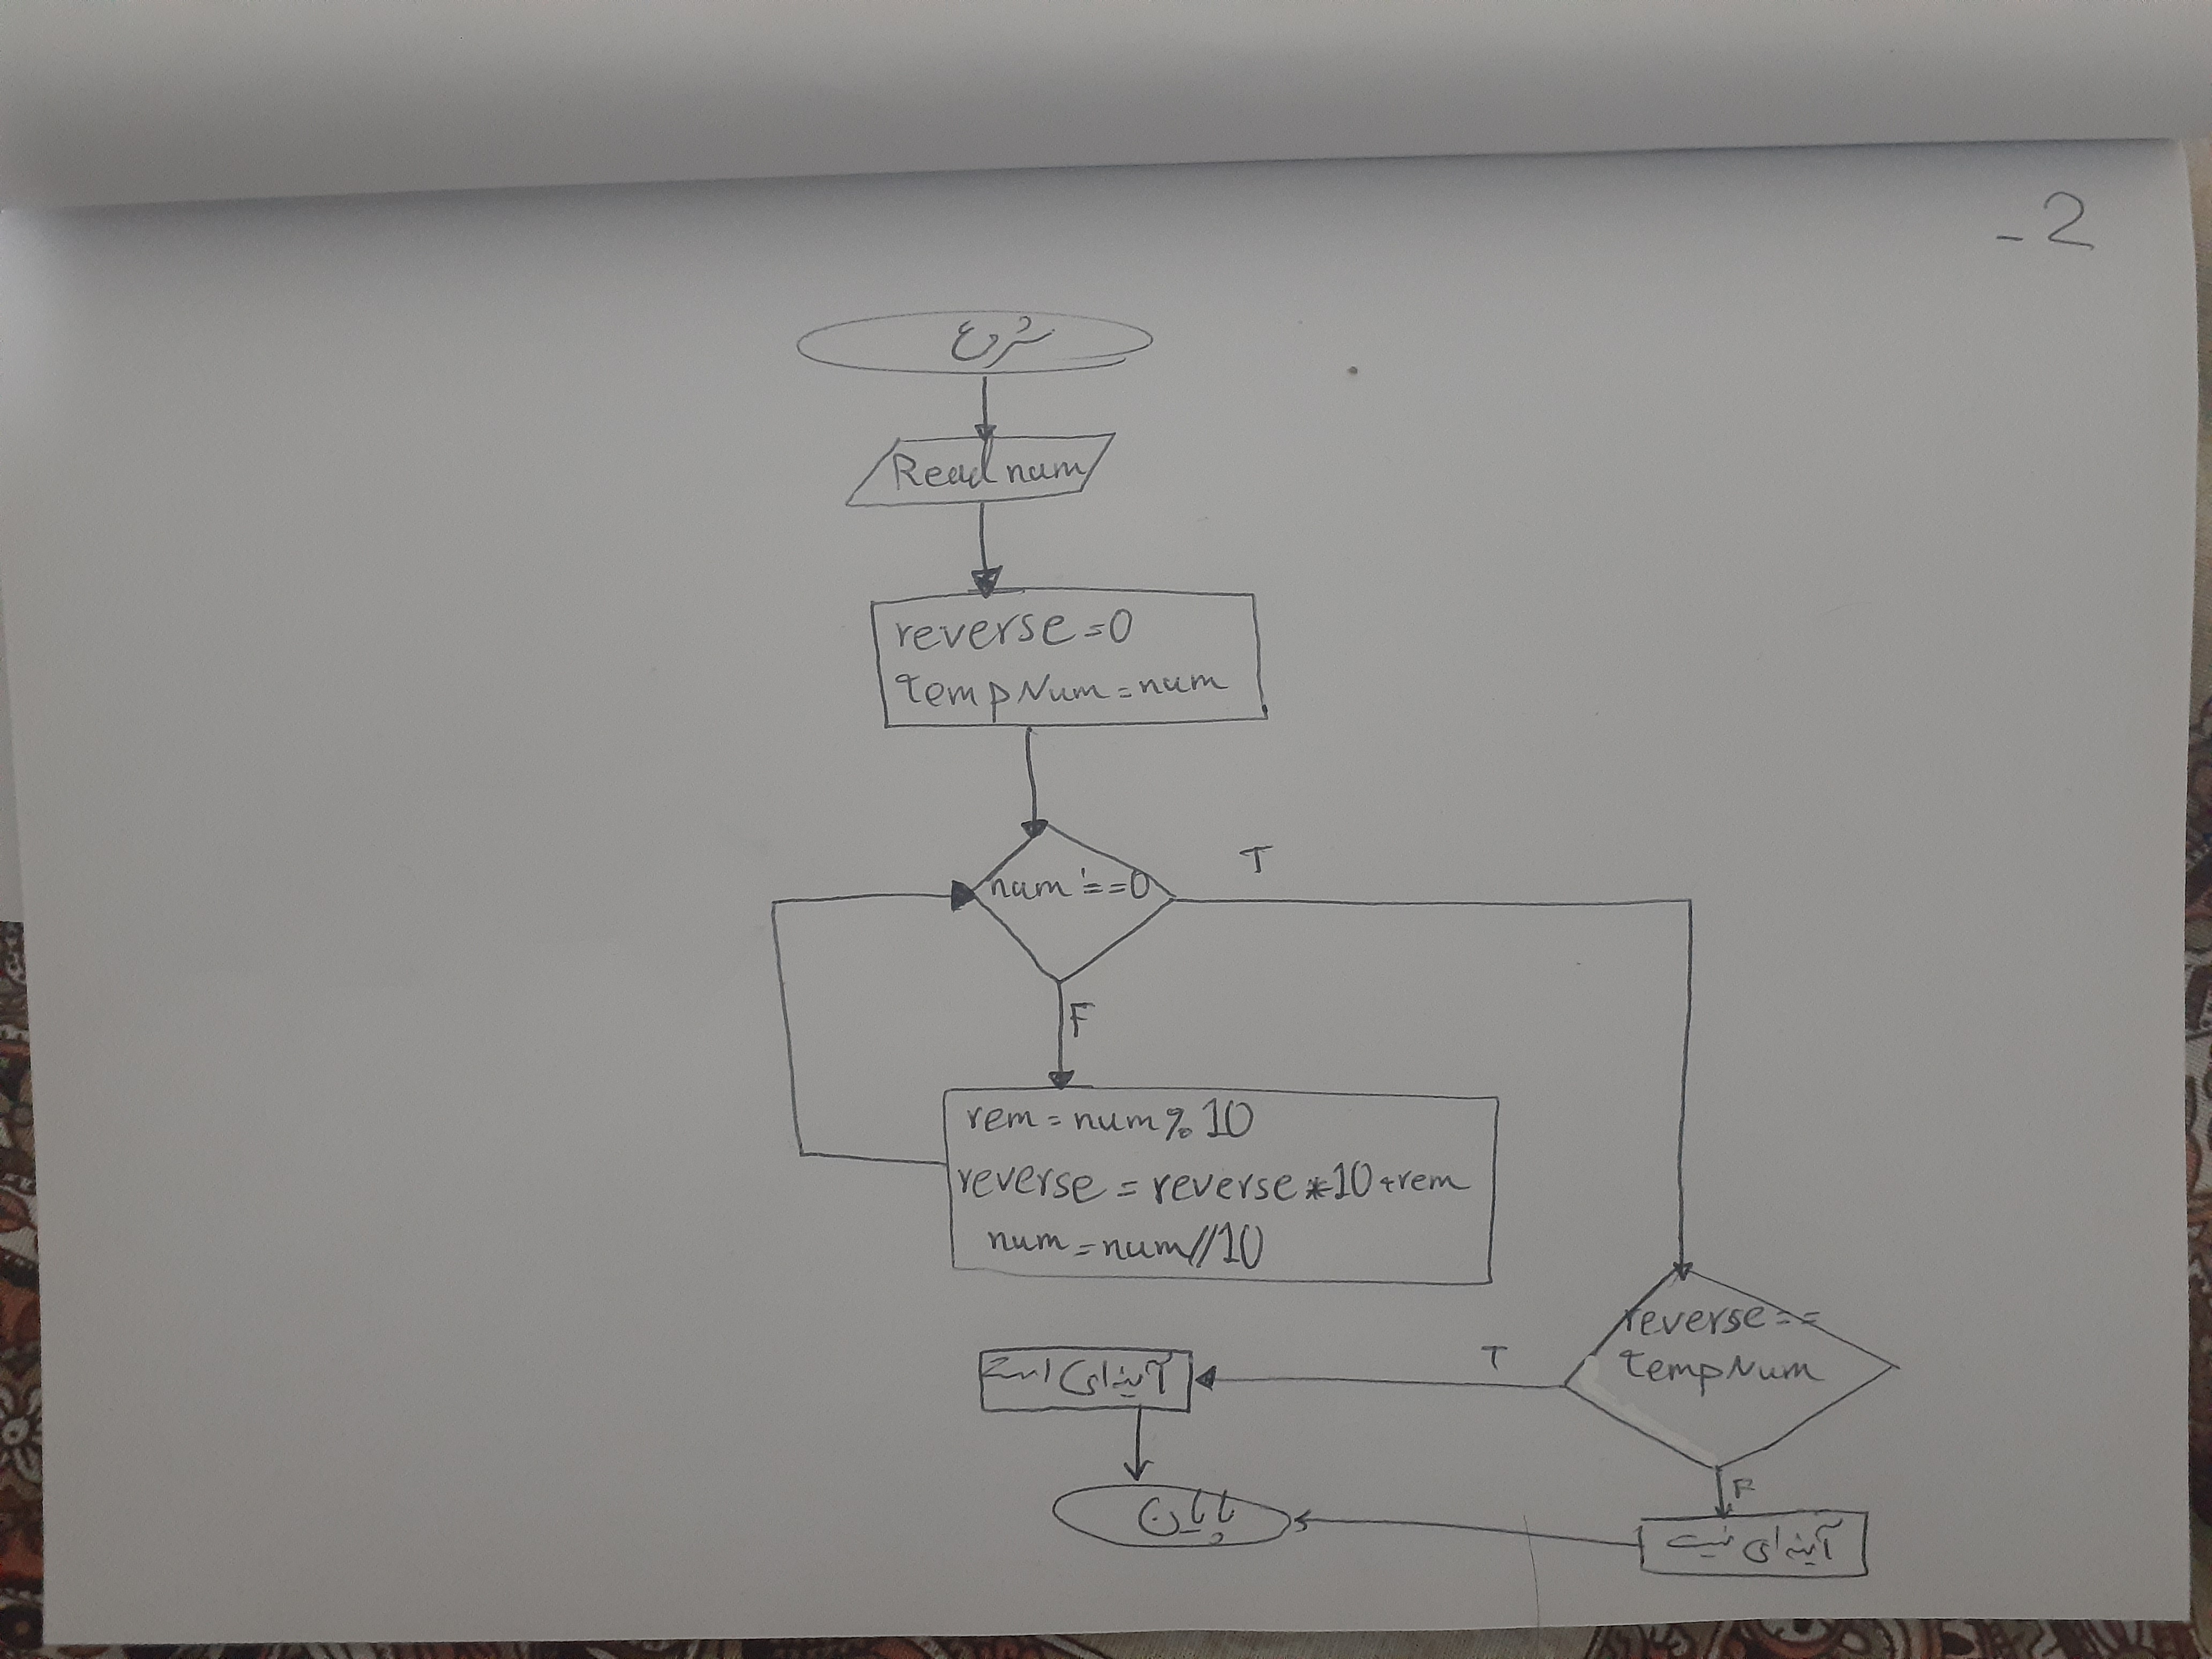 2 -
شروع
Read num
reverse=0
tempNum=num
num==0
T
F
rem = num % 10
reverse = reverse *10 +rem
num = num//10
reverse==
tempNum
T
آینه‌ای است
F
آینه‌ای نیست
پایان